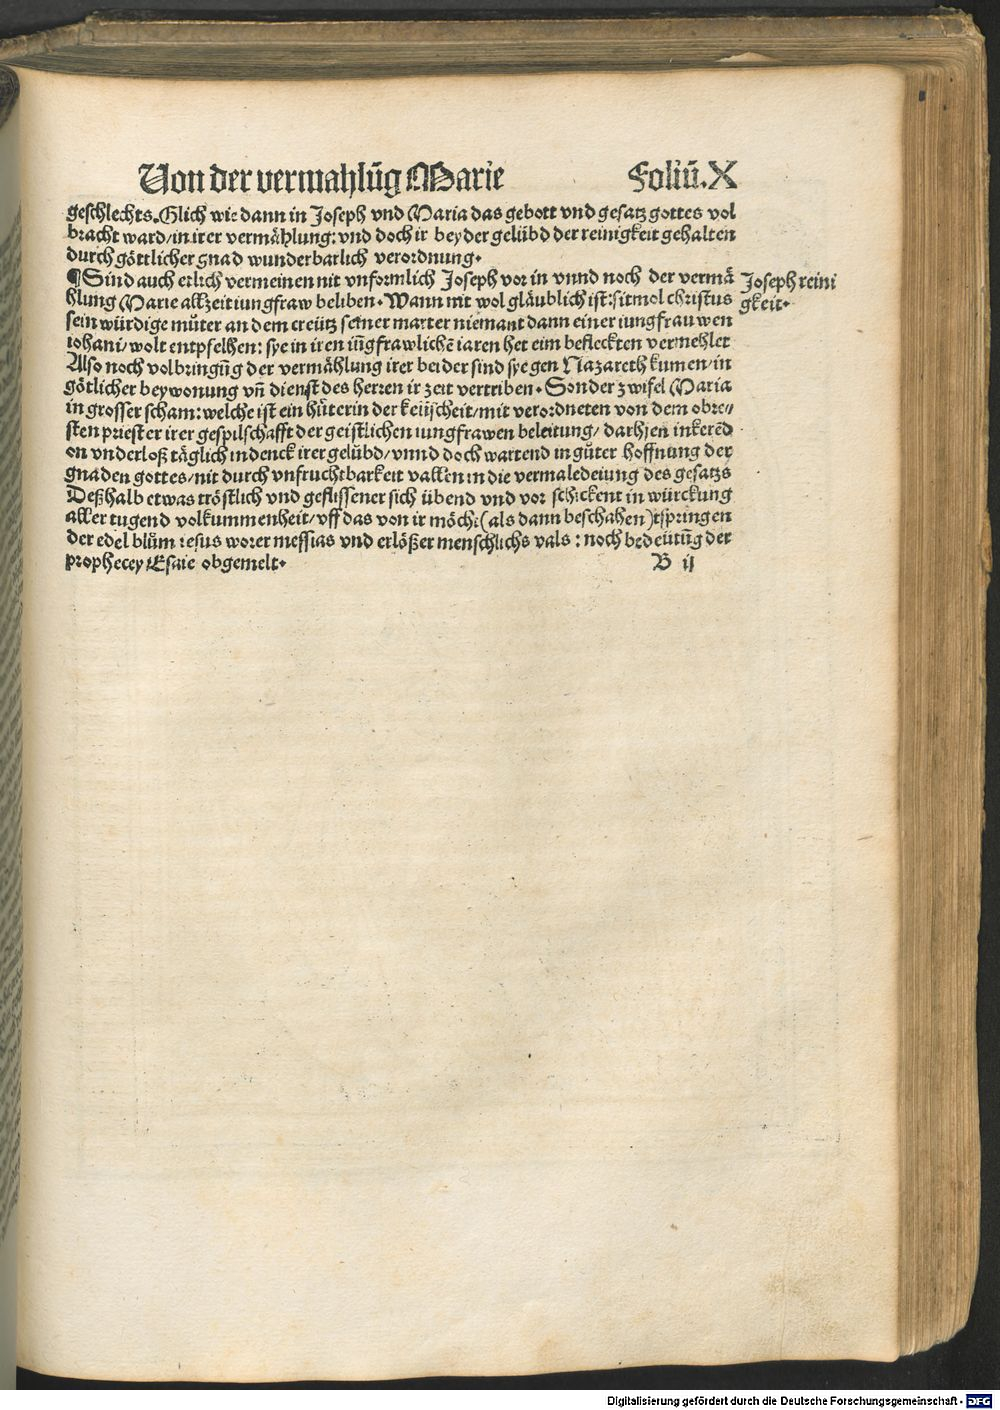 Von der vermahlūg Marie Foliū.X
geschlechts. Glich wie dann in Joseph vnd Maria das gebott vnd gesatz gottes vol
bracht ward/in irer vermåhlung: vnd doch ir beyder gelübd der reinigkeit gehalten
durch göttlicher gnad wunderbarlich verordnung.
¶Sind auch etlich vermeinen nit vnformlich Joseph vor in vnnd noch der vermā
hlung Marie allzeit iungfraw beliben. Wann nit wol gläublich ist: sitmol christus
sein würdige můter an dem creütz seiner marter niemant dann einer iungfrauwen
iohani/wolt entpfelhen: sye in iren iūgfrawlichē iaren het eim befleckten vermehlet
Also noch volbringūg der vermåhlung irer beider sind sye gen Nazareth kumen/in
götlicher beywonung vñ dienst des herren ir zeit vertriben. Sonder zwifel Maria
in grosser scham: welche ist ein hüterin der keüscheit/mit verordneten von dem obre//
sten priester irer gespilschafft der geistlichen iungfrawen beleitung/ darhjen inkerēd
on vnderloß täglich indenck irer gelübd/vnnd doch wartend in gůter hoffnung der
gnaden gottes/nit durch vnfruchtbarkeit vallen in die vermaledeiung des gesatzs
Deßhalb etwas tröstlich vnd geflissener sich übend vnd vor schickent in würckung
aller tugend volkummenheit/vff das von ir möcht(als dann beschahen)tspringen
der edel blům iesus worer messias vnd erlößer menschlichs vals: noch bedeütūg der
prophecey Esaie obgemelt. B ij
Joseph reini
gkeit.
Digitalisierung gefördert durch die Deutsche Forschungsgemeinschaft - DFG